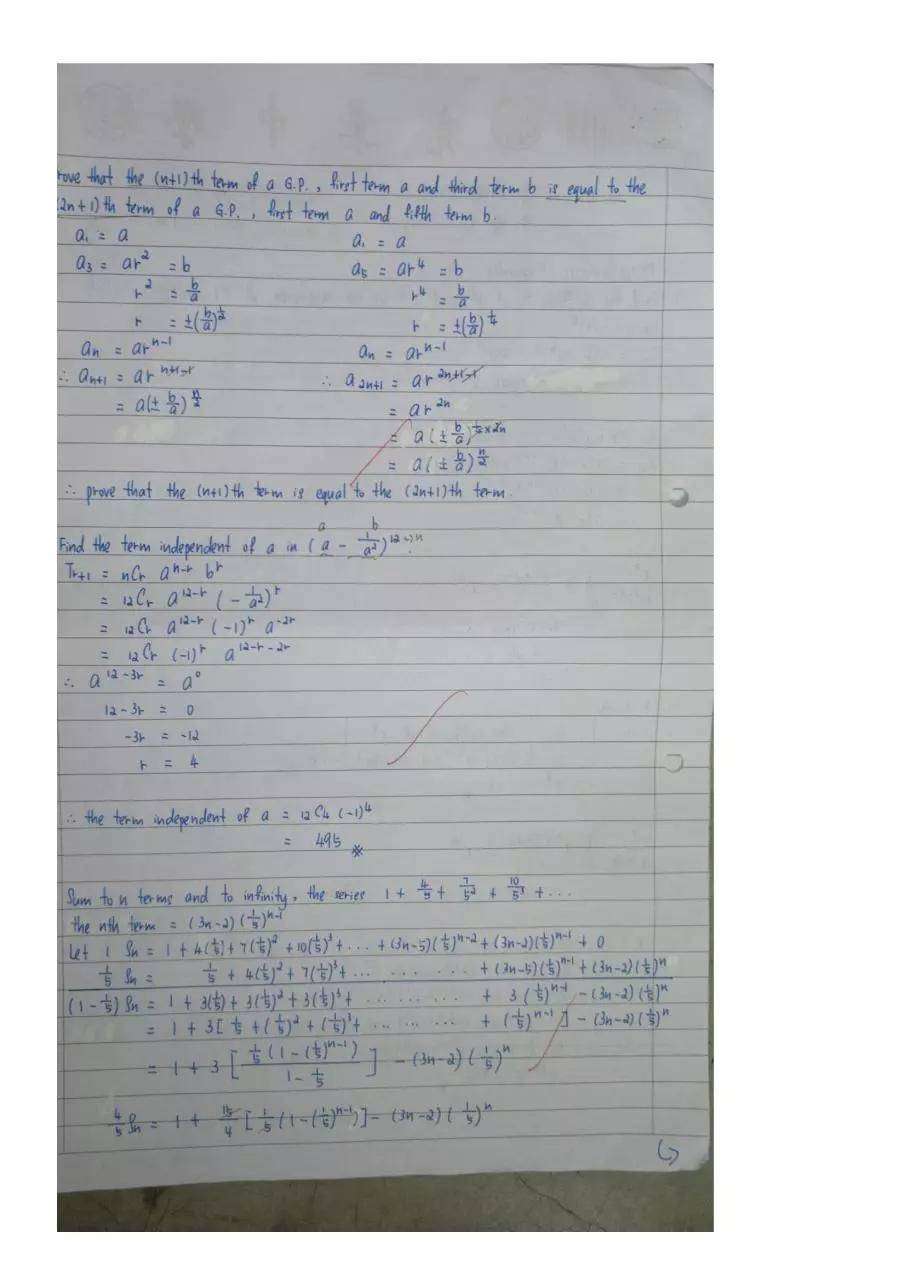 rove that the (n+1)th term of a G.P., first term a and third term b is equal to the
(2n+1)th term of a G.P., first term a and fifth term b.
a₁ = a
a₃ = ar² = b
r² = b/a
r = ±(b/a)^½
aₙ = ar^(n-1)
∴ aₙ₊₁ = ar^(n+1-1)
= a(± b/a)^(n/2)
a₁ = a
a₅ = ar⁴ = b
r⁴ = b/a
r = ±(b/a)^¼
aₙ = ar^(n-1)
∴ a₂ₙ₊₁ = ar^(2n+1-1)
= ar^(2n)
= a(± b/a)^(¼×2n)
= a(± b/a)^(n/2)
∴ prove that the (n+1)th term is equal to the (2n+1)th term.
a b
Find the term independent of a in (a - 1/a²)^12 → n
Tr+1 = nCr a^(n-r) b^r
= 12Cr a^(12-r) (-1/a²)^r
= 12Cr a^(12-r) (-1)^r a^(-2r)
= 12Cr (-1)^r a^(12-r-2r)
∴ a^(12-3r) = a⁰
12-3r = 0
-3r = -12
r = 4
∴ the term independent of a = 12C4 (-1)⁴
= 495
Sum to n terms and to infinity, the series 1 + 4/5 + 7/5² + 10/5³ + ...
the nth term = (3n-2)(1/5)^(n-1)
Let 1 Sn = 1 + 4(1/5) + 7(1/5)² + 10(1/5)³ + ... + (3n-5)(1/5)^(n-2) + (3n-2)(1/5)^(n-1) + 0
1/5 Sn = 1/5 + 4(1/5)² + 7(1/5)³ + ... ... ... + (3n-5)(1/5)^(n-1) + (3n-2)(1/5)^n
(1-1/5) Sn = 1 + 3(1/5) + 3(1/5)² + 3(1/5)³ + ... ... ... + 3(1/5)^(n-1) - (3n-2)(1/5)^n
= 1 + 3[1/5 + (1/5)² + (1/5)³ + ... ... ... + (1/5)^(n-1)] - (3n-2)(1/5)^n
= 1 + 3[1/5(1-(1/5)^(n-1)) / 1-1/5] - (3n-2)(1/5)^n
4/5 Sn = 1 + 15/4 [1/5(1-(1/5)^(n-1))] - (3n-2)(1/5)^n